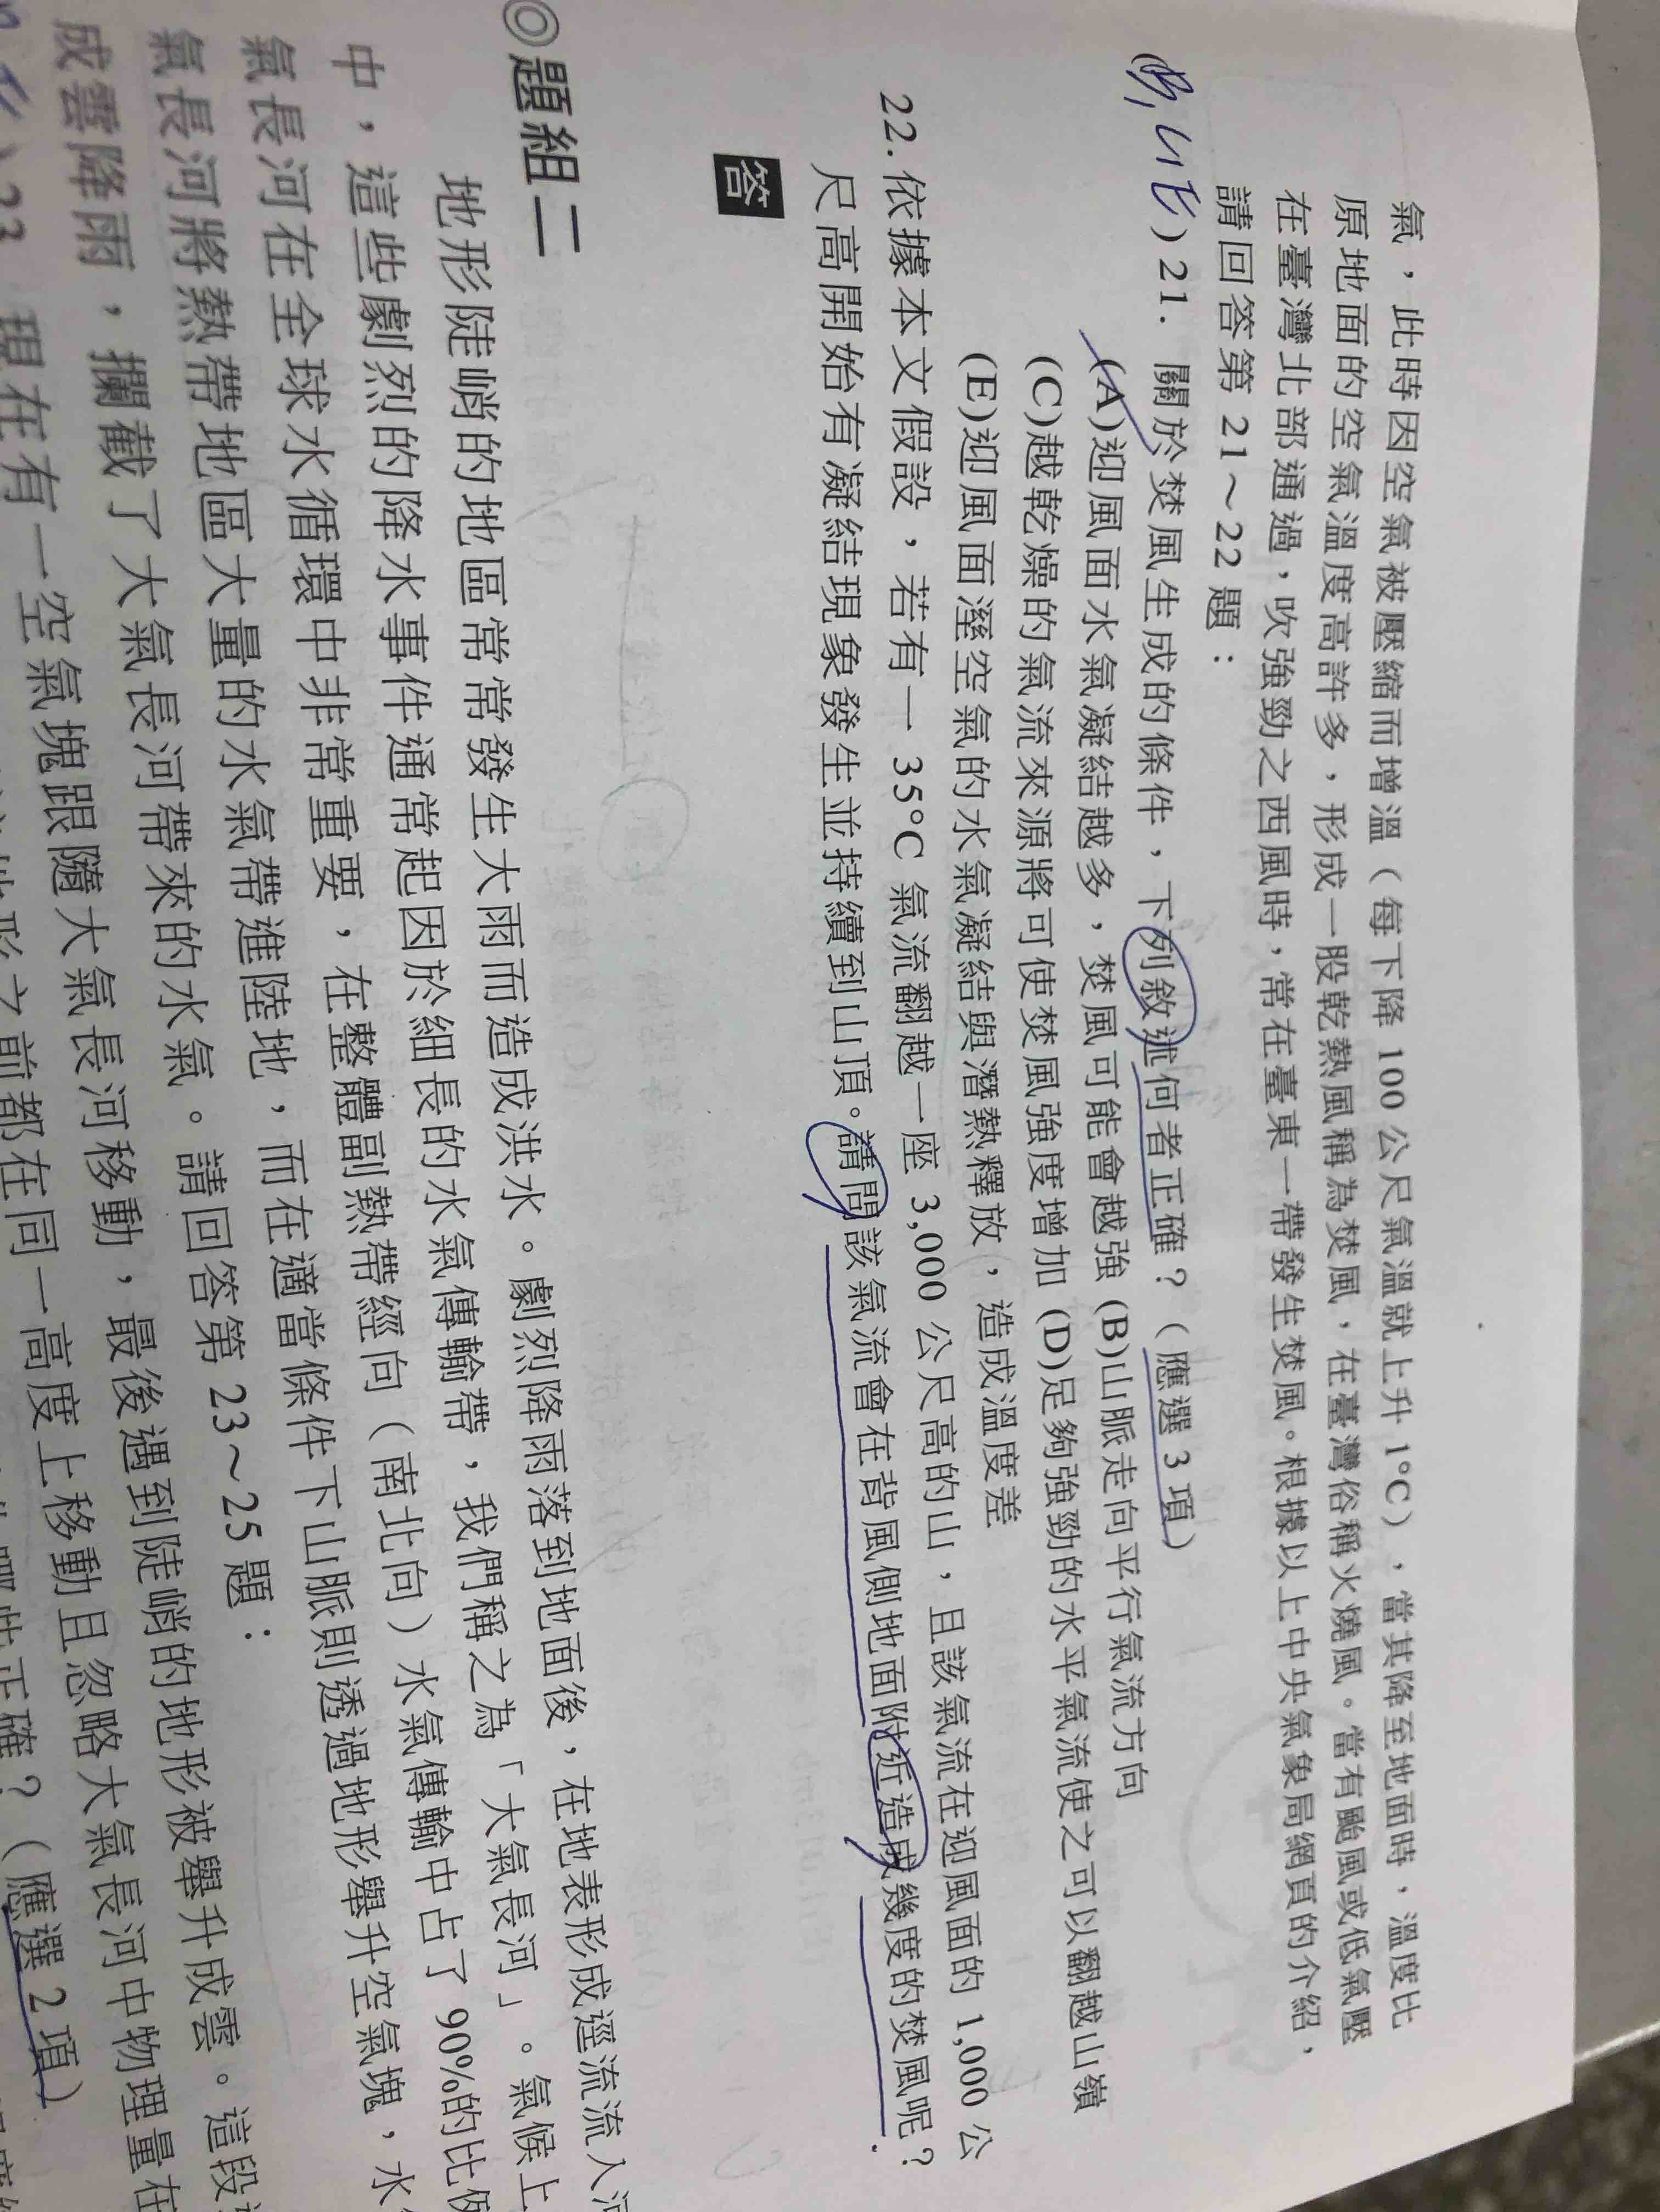 氣，此時因空氣被壓縮而增溫（每下降 100 公尺氣溫就上升 1°C），當其降至地面時，溫度比
原地面的空氣溫度高許多，形成一股乾熱風稱為焚風，在臺灣俗稱火燒風。當有颱風或低氣壓
在臺灣北部通過，吹強勁之西風時，常在臺東一帶發生焚風。根據以上中央氣象局網頁的介紹，
請回答第 21～22 題：
) 21. 關於焚風生成的條件，下列敘述何者正確？（應選 3 項）
(A)迎風面水氣凝結越多，焚風可能會越強 (B)山脈走向平行氣流方向
(C)越乾燥的氣流來源將可使焚風強度增加 (D)足夠強勁的水平氣流使之可以翻越山嶺
(E)迎風面溼空氣的水氣凝結與潛熱釋放，造成溫度差
22. 依據本文假設，若有一 35°C 氣流翻越一座 3,000 公尺高的山，且該氣流在迎風面的 1,000 公
尺高開始有凝結現象發生並持續到山頂。請問該氣流會在背風側地面附近造成幾度的焚風呢？
答
◎題組二
地形陡峭的地區常常發生大雨而造成洪水。劇烈降雨落到地面後，在地表形成逕流流入河
中，這些劇烈的降水事件通常起因於細長的水氣傳輸帶，我們稱之為「大氣長河」。氣候上
氣長河在全球水循環中非常重要，在整體副熱帶經向（南北向）水氣傳輸中占了 90%的比例
氣長河將熱帶地區大量的水氣帶進陸地，而在適當條件下山脈則透過地形舉升空氣塊，水
成雲降雨，攔截了大氣長河帶來的水氣。請回答第 23～25 題：
) 23. 現在有一空氣塊跟隨大氣長河移動，最後遇到陡峭的地形被舉升成雲。這段
之前都在同一高度上移動且忽略大氣長河中物理量在
正確？（應選 2 項）